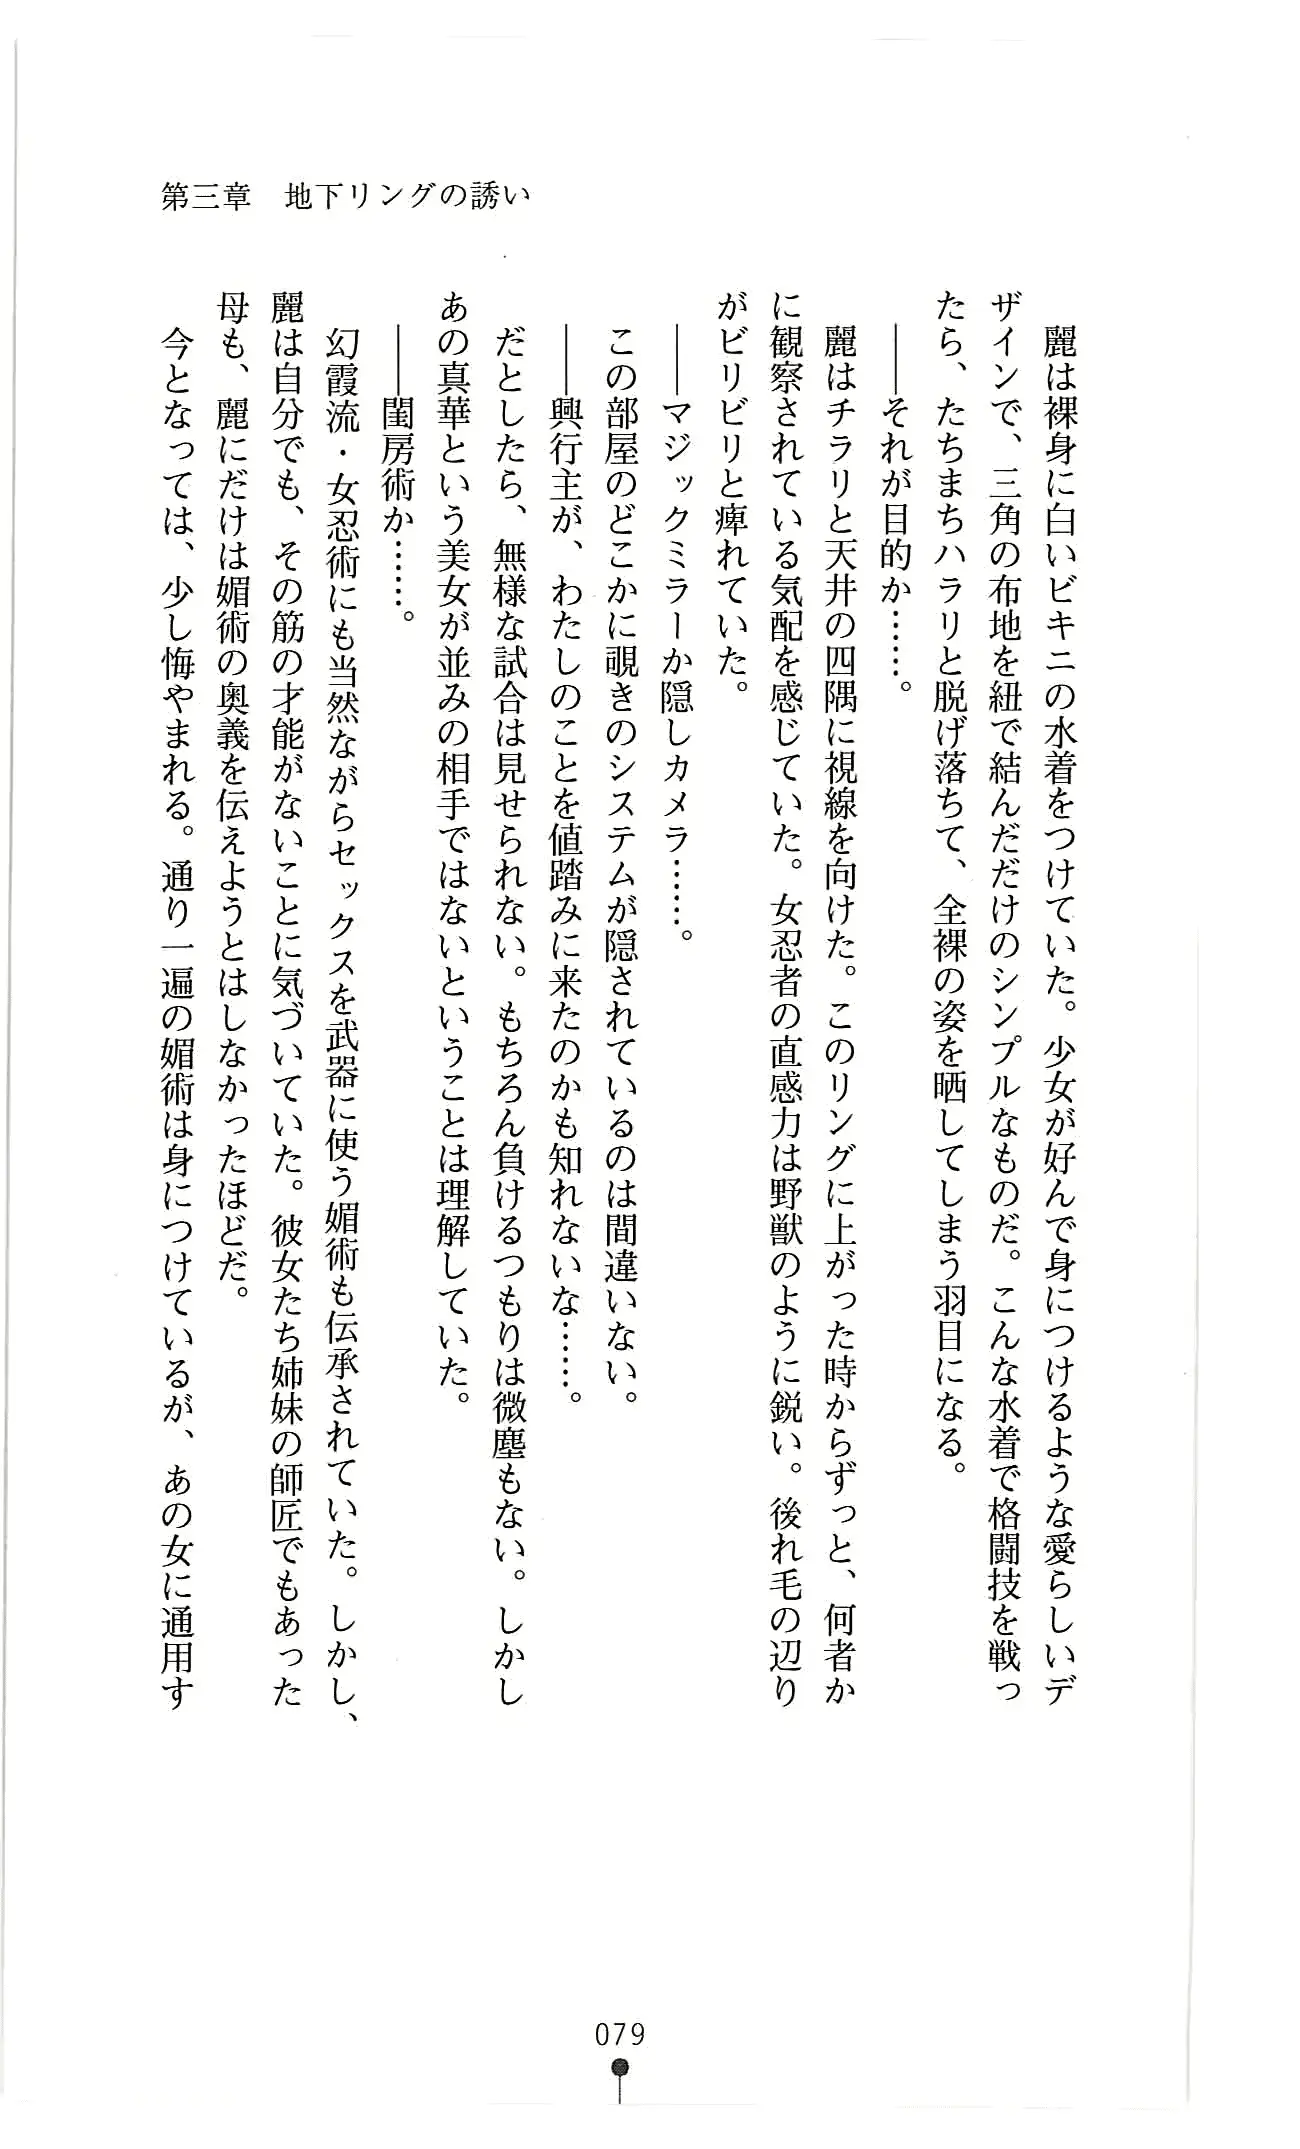 第三章　地下リングの誘い
　麗は裸身に白いビキニの水着をつけていた。少女が好んで身につけるような愛らしいデ
ザインで、三角の布地を紐で結んだだけのシンプルなものだ。こんな水着で格闘技を戦っ
たら、たちまちハラリと脱げ落ちて、全裸の姿を晒してしまう羽目になる。
　――それが目的か……。
　麗はチラリと天井の四隅に視線を向けた。このリングに上がった時からずっと、何者か
に観察されている気配を感じていた。女忍者の直感力は野獣のように鋭い。後れ毛の辺り
がビリビリと痺れていた。
　――マジックミラーか隠しカメラ……。
　この部屋のどこかに覗きのシステムが隠されているのは間違いない。
　――興行主が、わたしのことを値踏みに来たのかも知れないな……。
　だとしたら、無様な試合は見せられない。もちろん負けるつもりは微塵もない。しかし
あの真華という美女が並みの相手ではないということは理解していた。
　――閨房術か……。
　幻霞流・女忍術にも当然ながらセックスを武器に使う媚術も伝承されていた。しかし、
麗は自分でも、その筋の才能がないことに気づいていた。彼女たち姉妹の師匠でもあった
母も、麗にだけは媚術の奥義を伝えようとはしなかったほどだ。
　今となっては、少し悔やまれる。通り一遍の媚術は身につけているが、あの女に通用す
079